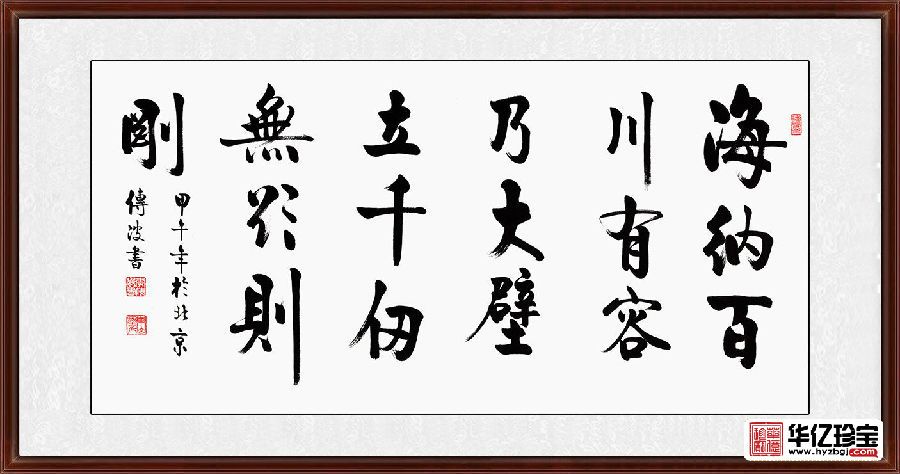 海納百
川有容
乃大壁
立千仞
無欲則
剛
甲午年於北京
傳波書
华亿珍宝
www.hyzbgj.com